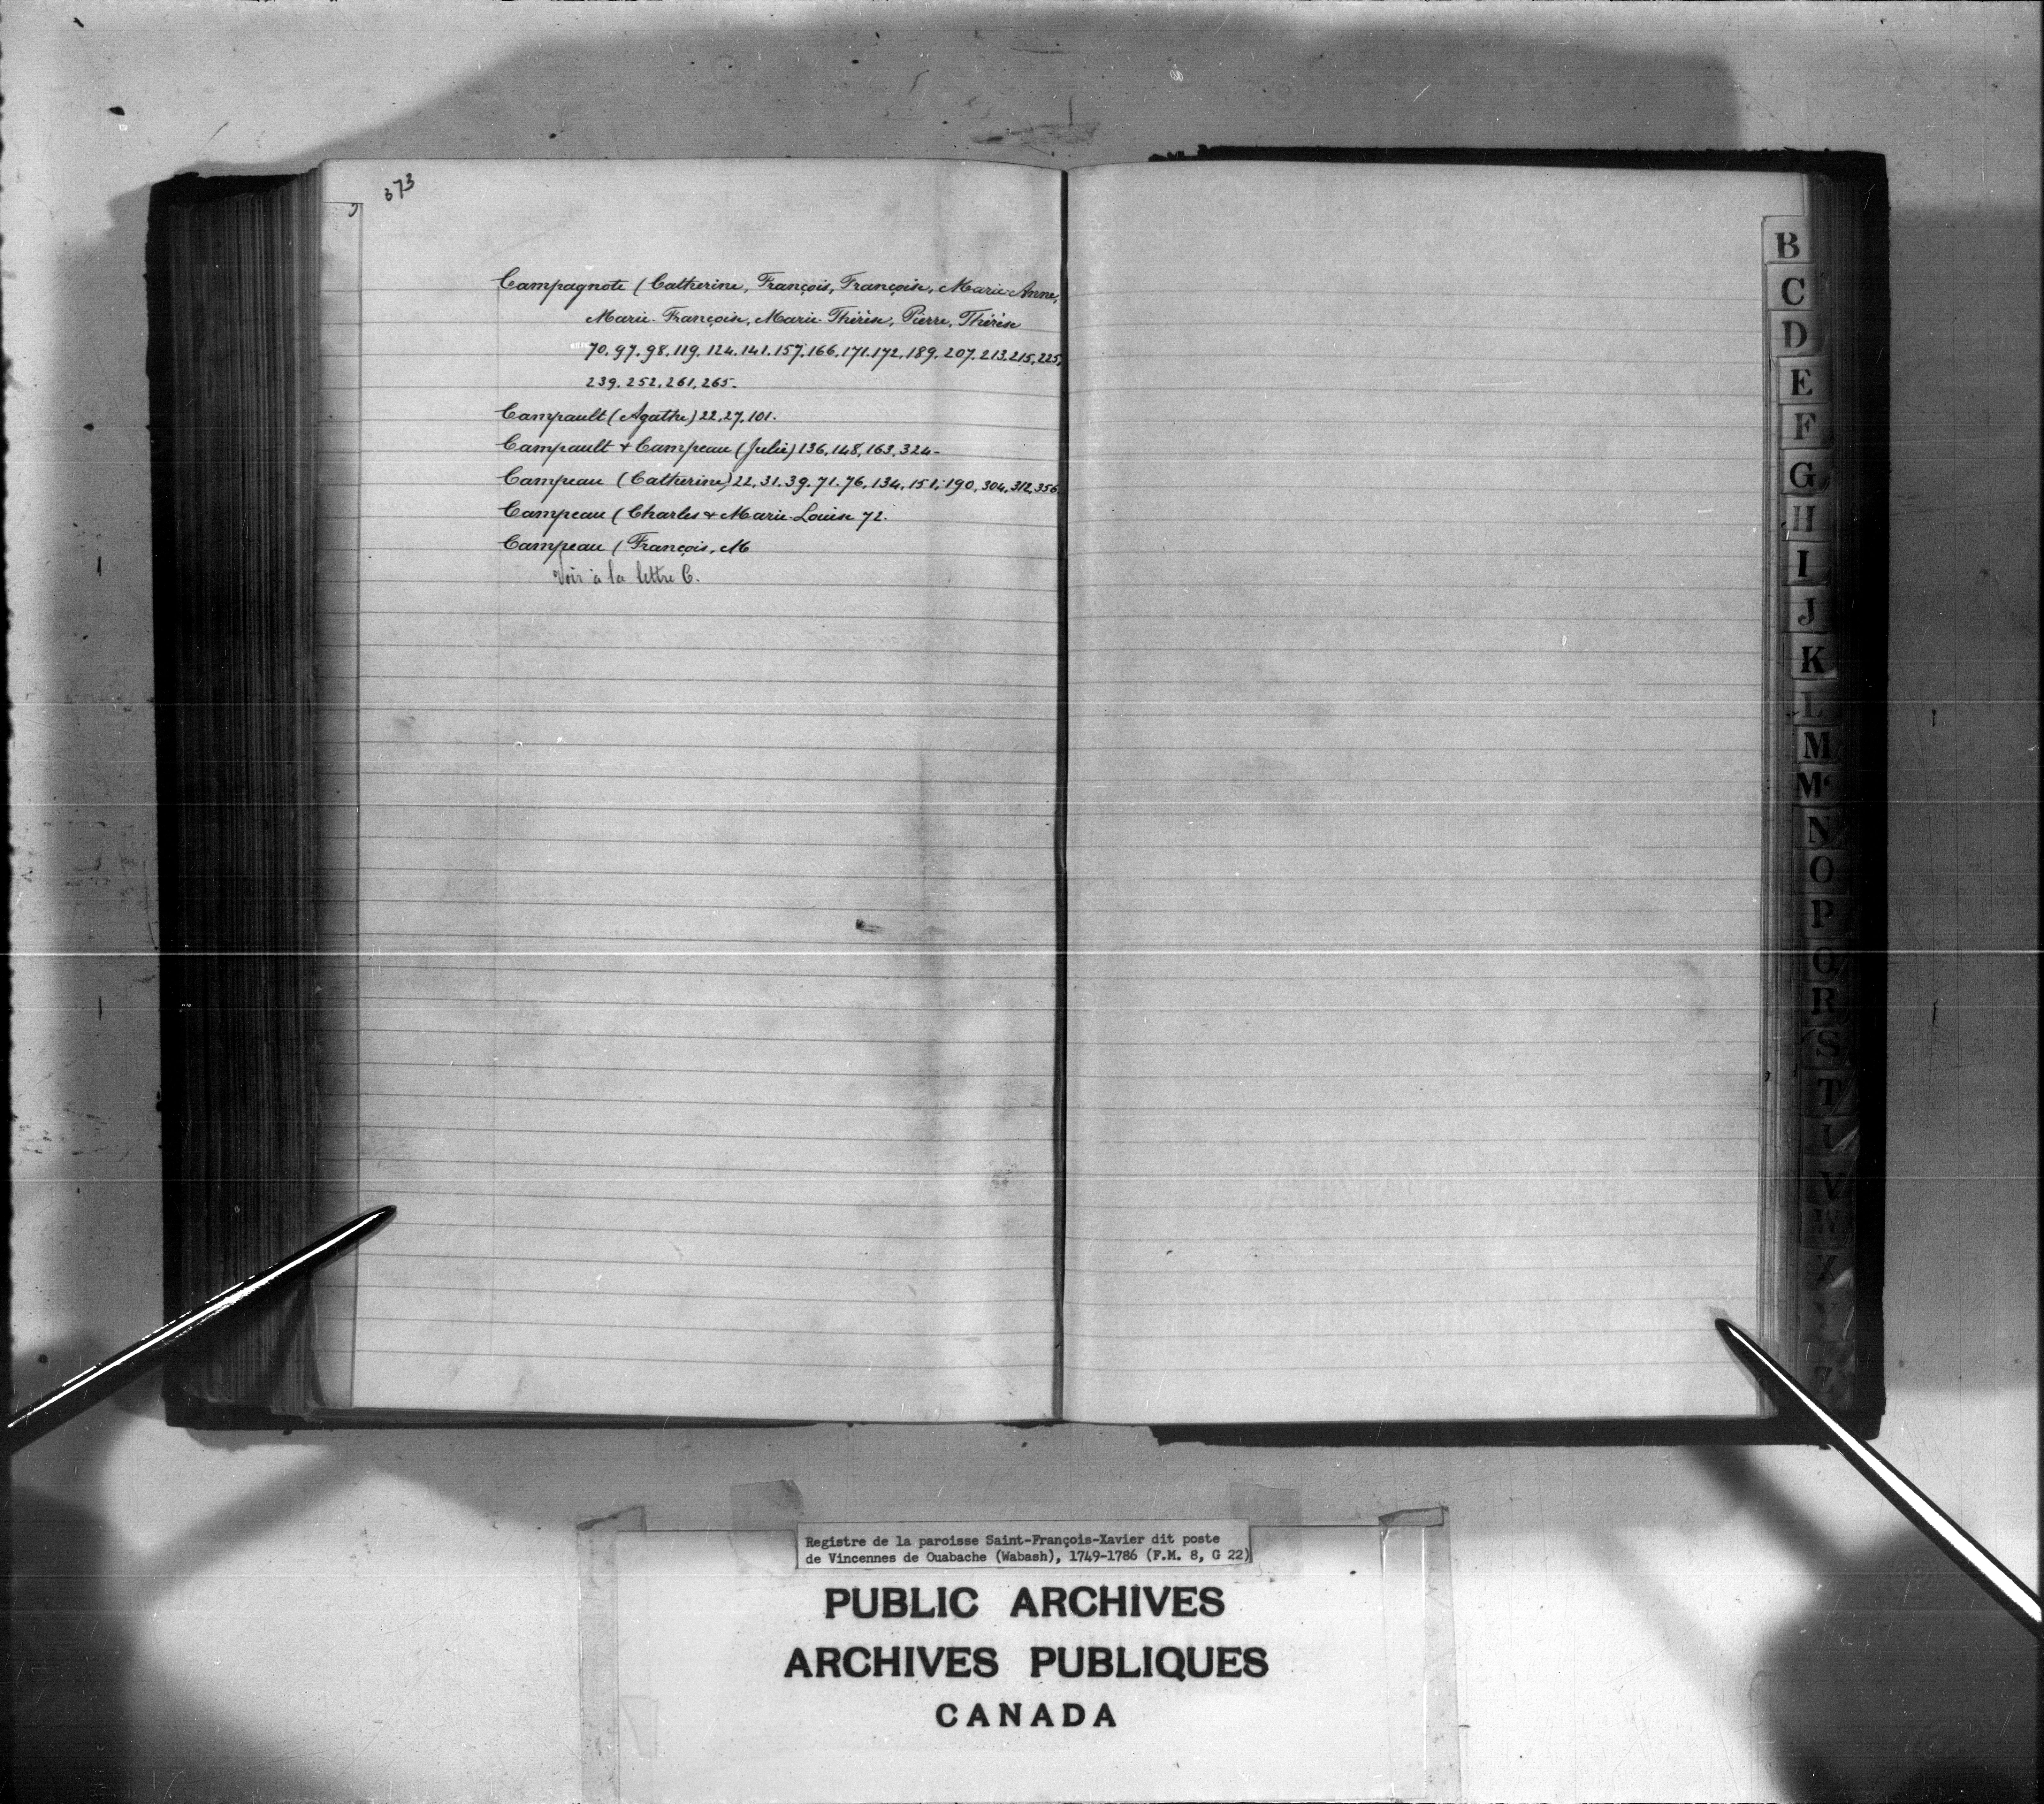 373
Campagnote (Catherine, François, Françoise, Marie-Anne,
Marie-Françoise, Marie-Thérèse, Pierre, Thérèse
70.97.98.119.124.141.157.166.171.172.189.207.213.215.225,
239.252.261.265.
Campault (Agathe) 22.27.101.
Campault & Campeau (Julie) 136.148.163.324.
Campeau (Catherine) 22.31.39.71.76.134.151.190.304.312.356
Campeau (Charles & Marie-Louise 72.
Campeau (François, M
Voir à la lettre C.
B
C
D
E
F
G
H
I
J
K
L
M
Mc
N
O
P
Q
R
S
T
U
V
W
X
Y
Z
Registre de la paroisse Saint-François-Xavier dit poste
de Vincennes de Ouabache (Wabash), 1749-1786 (F.M. 8, G 22)
PUBLIC ARCHIVES
ARCHIVES PUBLIQUES
CANADA